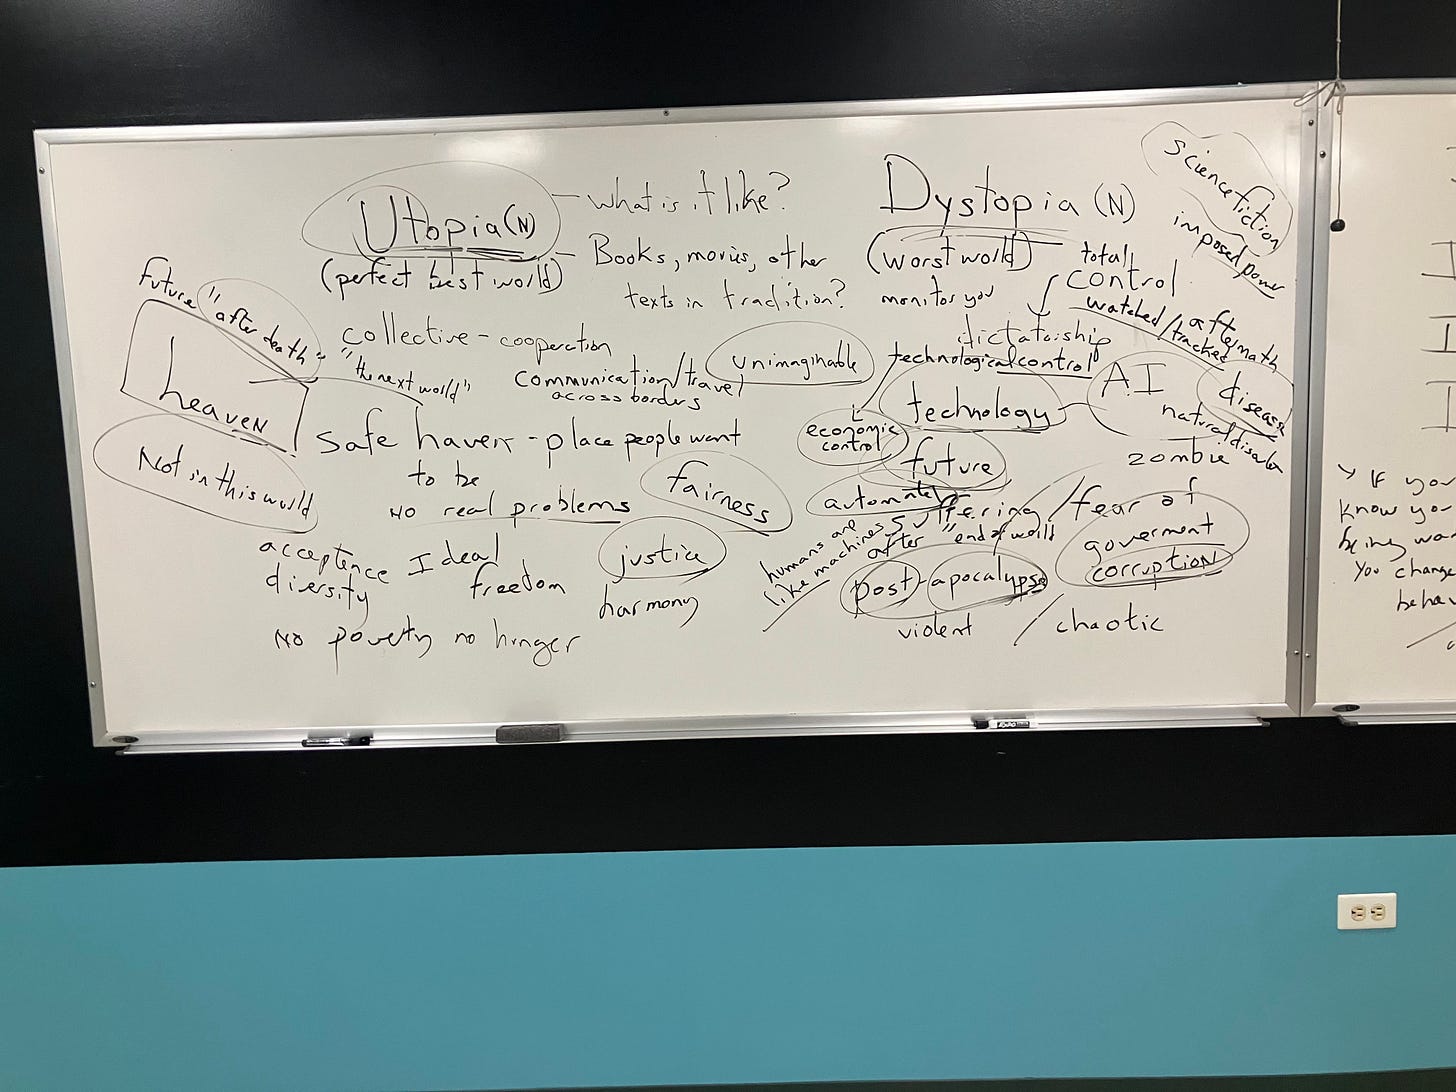 Utopia (N)
(perfect best world)
- what is it like?
- Books, movies, other
texts in tradition?
future
"after death"
heaven
Not in this world
collective - cooperation
"the next world"
communication/travel
across borders
unimaginable
safe haven - place people want
to be
no real problems
fairness
acceptence
diversity
Ideal
freedom
justice
harmony
No poverty no hunger
Dystopia (N)
(worst world)
monitor you
total
control
watched/tracked
dictatorship
technological control
science fiction
imposed power
aftermath
disease
natural disaster
A.I
technology
economic
control
future
zombie
automated
suffering
humans are
like machines
after
"end of world
post-apocalypse
/fear of
goverment
corruption
violent
/chaotic
EXPO
IF you
know you
being
You change
behav